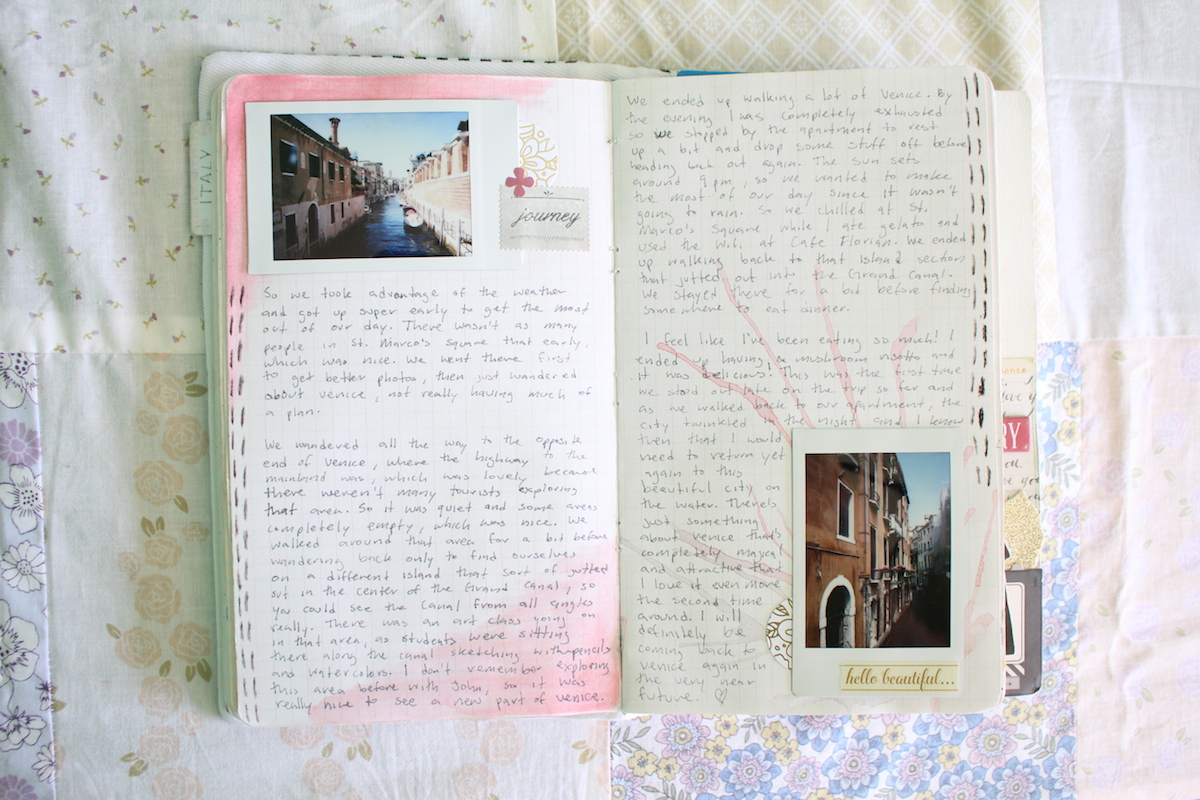 ITALY
journey
So we took advantage of the weather
and got up super early to get the most
out of our day. There wasn't as many
people in St. Marco's square that early,
which was nice. We went there first
to get better photos, then just wandered
about venice, not really having much of
a plan.
We wandered all the way to the opposite
end of venice, where the highway to the
mainland was, which was lovely because
there weren't many tourists exploring
that area. So it was quiet and some areas
completely empty, which was nice. We
walked around that area for a bit before
wandering back only to find ourselves
on a different island that sort of jutted
out in the center of the Grand Canal, so
you could see the Canal from all angles
really. There was an art class going on
in that area, as students were sitting
there along the canal sketching with pencils
and watercolors. I don't remember exploring
this area before with John, so it was
really nice to see a new part of venice.
We ended up walking a lot of Venice. By
the evening I was completely exhausted
so we stopped by the apartment to rest
up a bit and drop some stuff off before
heading back out again. The sun sets
around 9 pm, so we wanted to make
the most of our day since it wasn't
going to rain. So we chilled at St.
Marco's Square while I ate gelato and
used the wifi at Cafe Florian. We ended
up walking back to that island section
that jutted out into the Grand Canal.
We stayed there for a bit before finding
somewhere to eat dinner.
I feel like I've been eating so much! I
ended up having a mushroom risotto and
it was delicious! This was the first time
we stayed out late on the trip so far and
as we walked back to our apartment, the
city twinkled in the night and I knew
then that I would
need to return yet
again to this
beautiful city on
the water. There's
just something
about venice that's
completely magical
and attractive that
I love it even more
the second time
around. I will
definitely be
coming back to
venice again in
the very near
future. ♡
hello beautiful...
RY
you.